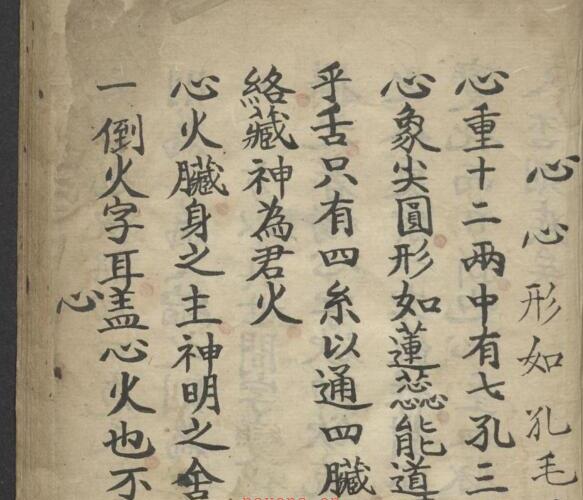 心心形如孔毛
心重十二兩中有七孔三
心象尖圓形如蓮蕊能道
乎舌只有四系以通四臟
絡藏神為君火
心火臟身之主神明之舍
一倒火字耳盖心火也不
心